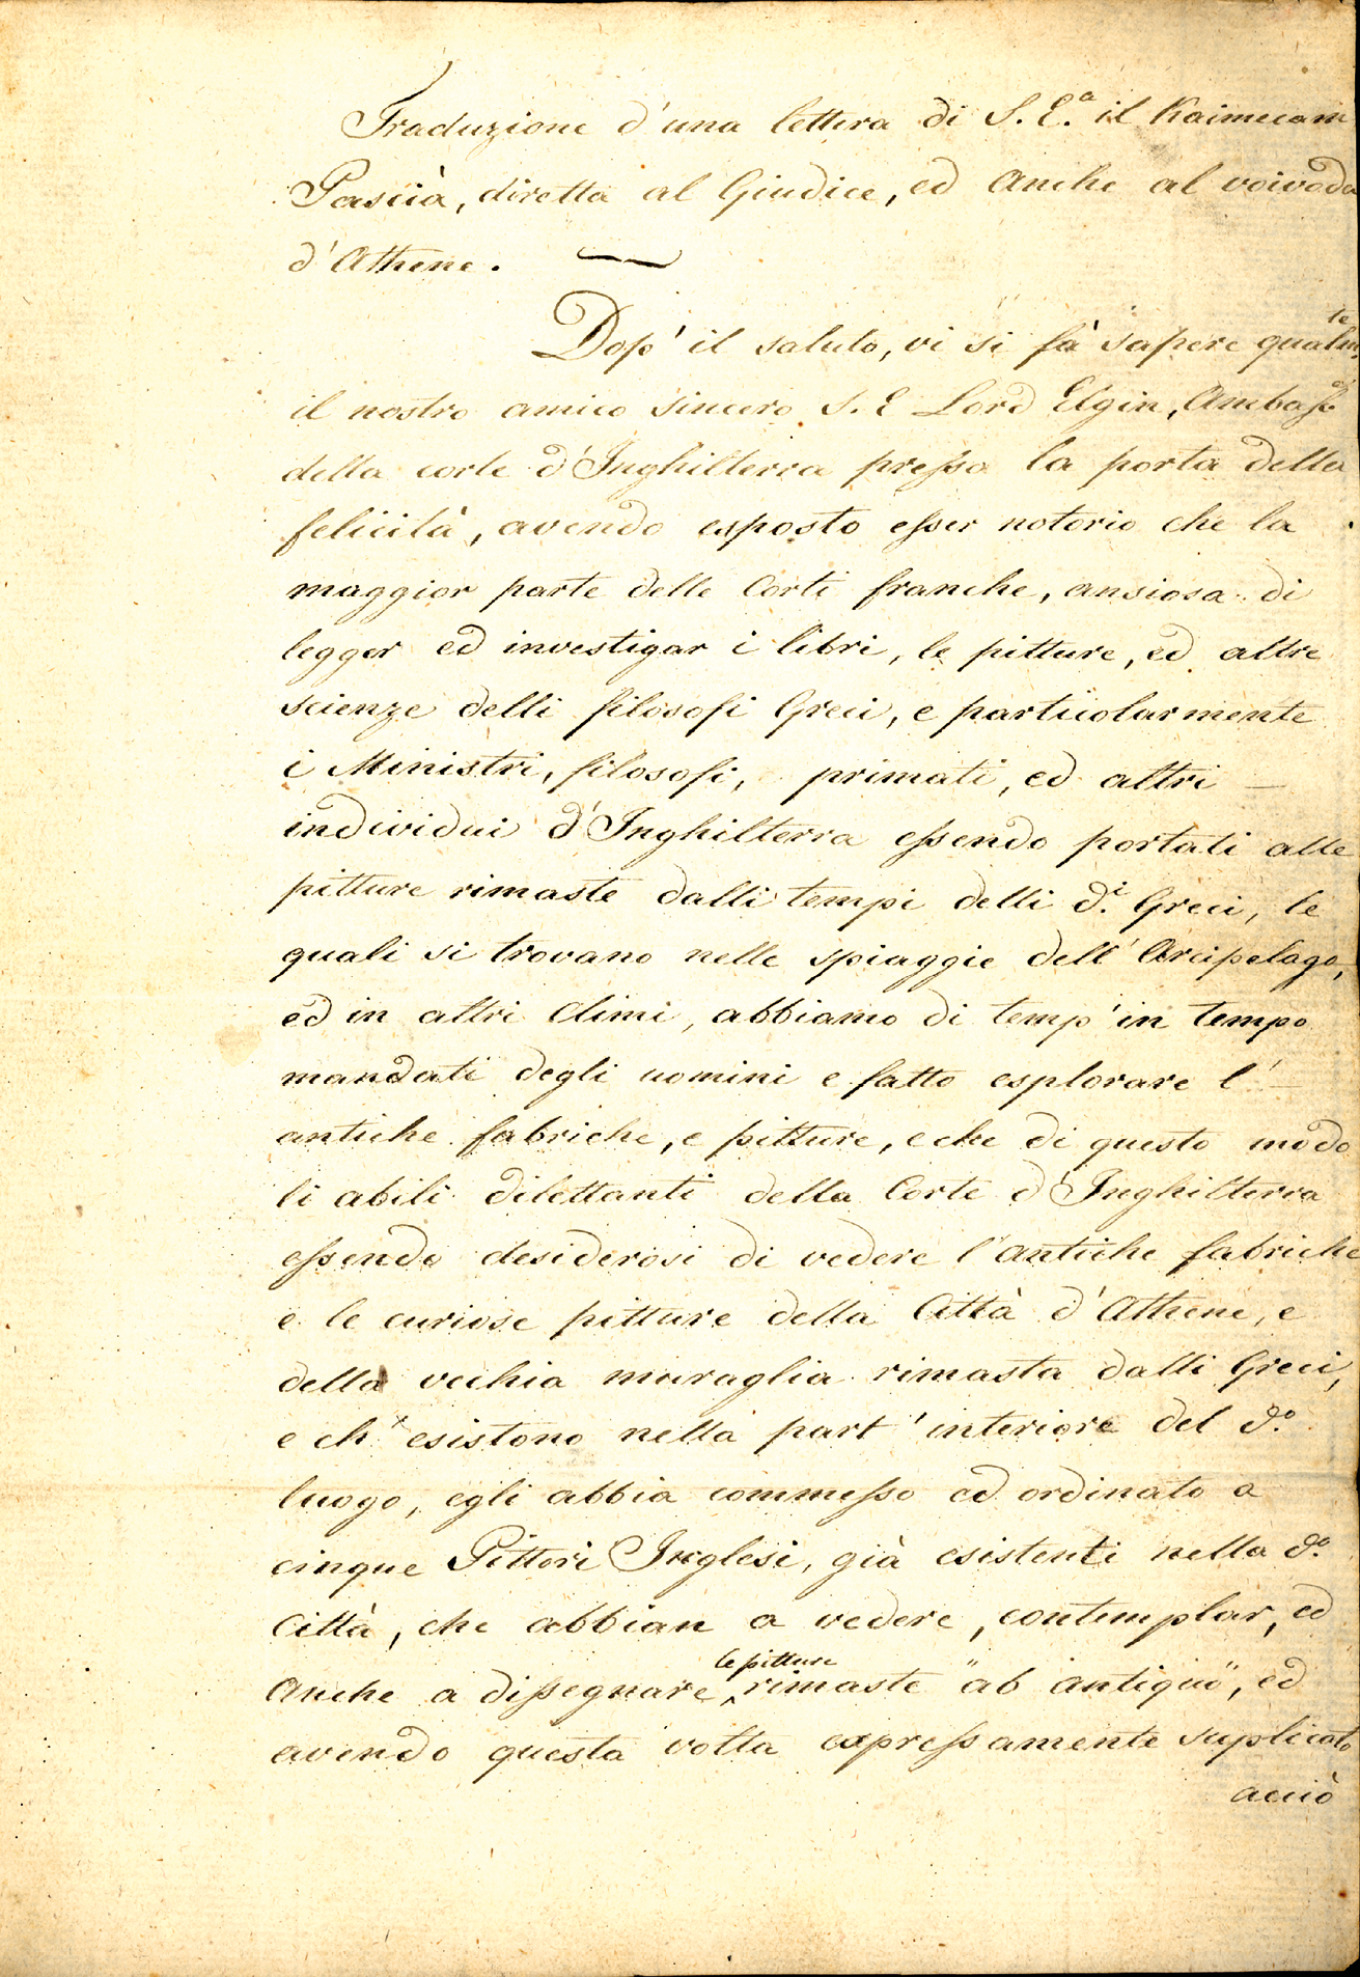 Traduzione d'una lettera di S. E.a il Kaimecam
Pascià, diretta al Giudice, ed anche al voivoda
d'Athene.
Dop' il saluto, vi si fà sapere qualmte
il nostro amico sincero S. E Lord Elgin, Ambassre
della corte d'Inghilterra presso la porta della
felicità, avendo esposto esser notorio che la
maggior parte delle Corti franche, ansiosa di
legger ed investigar i libri, le pitture, ed altre
scienze delli filosofi Greci, e particolarmente
i Ministri, filosofi, primati, ed altri —
individui d'Inghilterra essendo portati alle
pitture rimaste dalli tempi delli d.i Greci, le
quali si trovano nelle spiaggie dell' Arcipelago,
ed in altri Climi, abbiamo di temp' in tempo
mandati degli uomini e fatto esplorare l'
antiche fabriche, e pitture, e che di questo modo
li abili dilettanti della Corte d'Inghilterra
essendo desiderosi di vedere l'antiche fabriche
e le curiose pitture della Città d'Athene, e
della vechia muraglia rimasta dalli Greci,
e ch' esistono nella part' interiore del d.o
luogo, egli abbia commesso ed ordinato a
cinque Pittori Inglesi, già esistenti nella d.a
Città, che abbian a vedere, contemplar, ed
anche a dissegnare le pitture rimaste "ab antiquo", ed
avendo questa volta expressamente suplicato
acciò